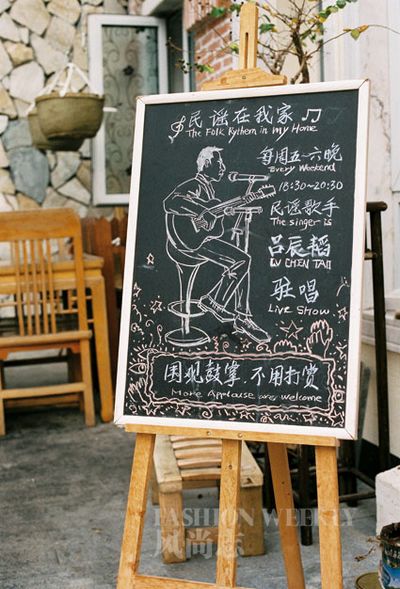 民谣在我家
The Folk Rythem in my Home
每周五~六晚
Every Weekend
18:30~20:30
民谣歌手
The singer is
吕辰韬
LV CHEN TAO
驻唱
Live Show
围观鼓掌.不用打赏
More Applause are welcome
FASHION WEEKLY
风尚志